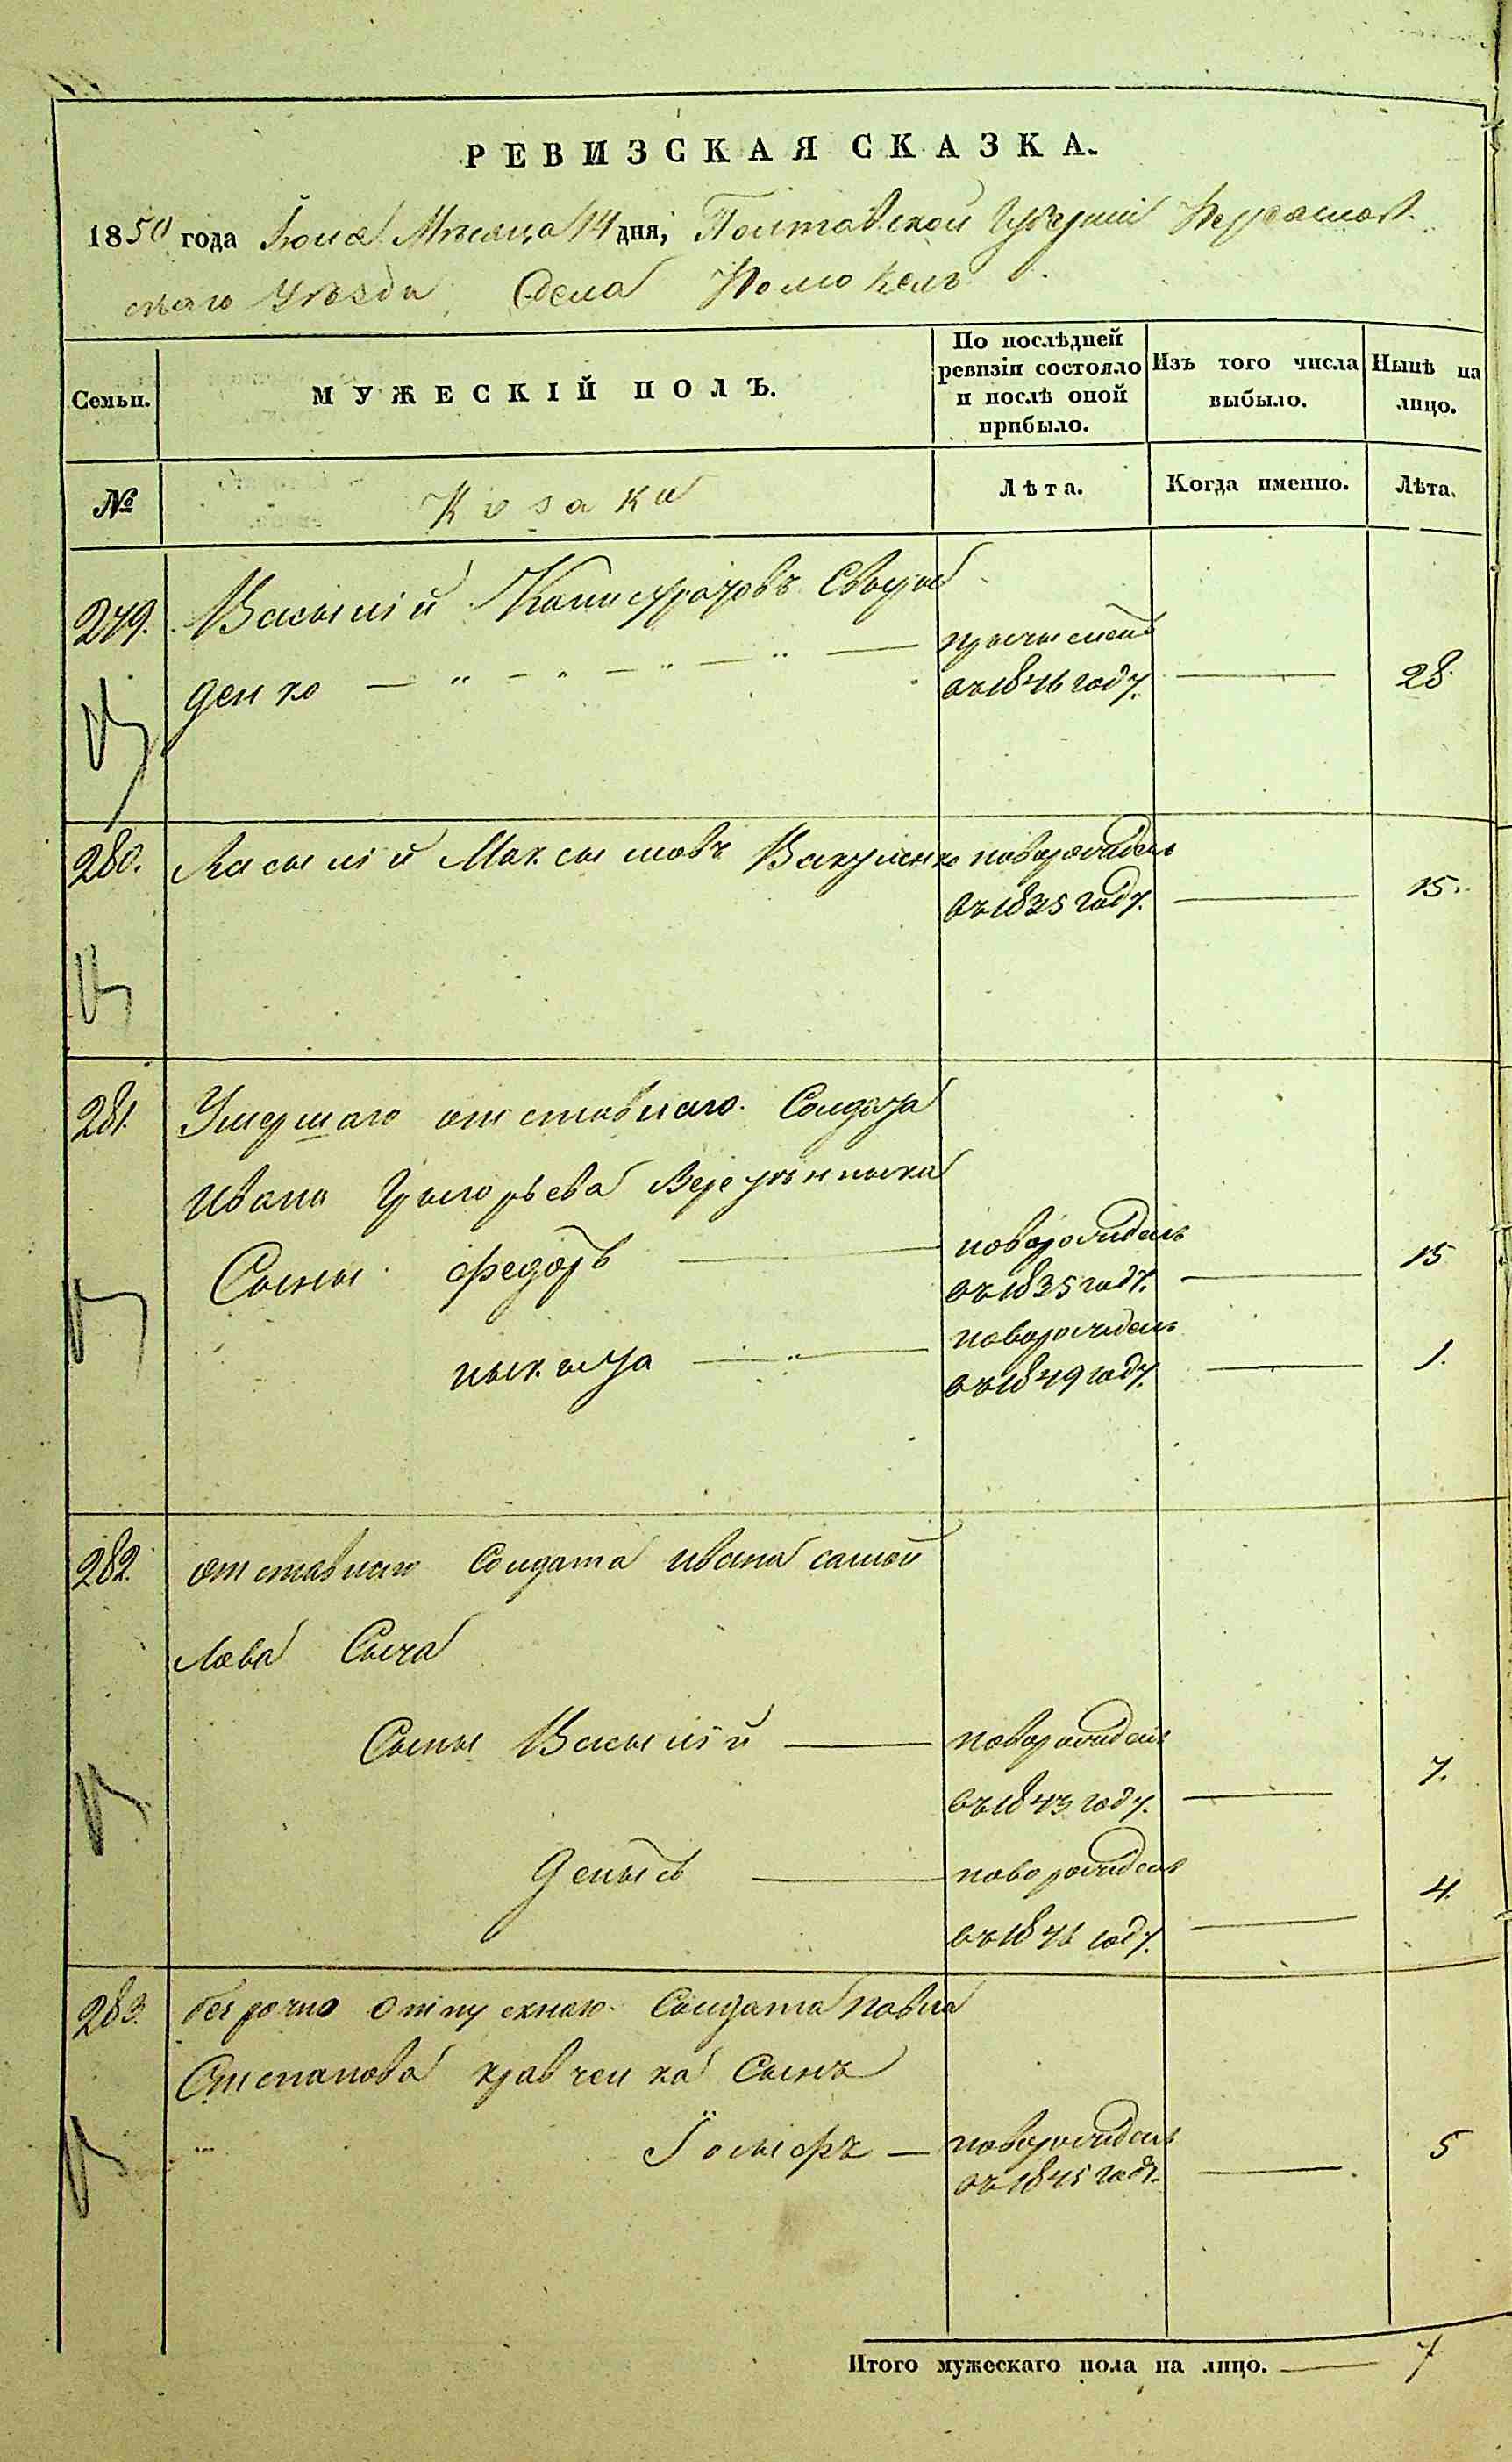 РЕВИЗСКАЯ СКАЗКА.
1850 года Іюля Мѣсяца 14 дня, Полтавской Губерніи
скаго Уѣзда Села
Семьи. МУЖЕСКІЙ ПОЛЪ. По послѣдней ревизіи состояло и послѣ оной прибыло. Изъ того числа выбыло. Нынѣ на лицо.
№ Козаки Лѣта. Когда именно. Лѣта.
279. Васылій
денко въ 1846 году. 28.
280. Васылій Максымовъ Вакуленко новорожденъ
въ 1835 году. 15.
281. Умершаго отставнаго Солдата
Ивана Грыгорьева
Сыны Федоръ новорожденъ
въ 1835 году. 15
Ныкыта новорожденъ
въ 1849 году. 1.
282. отставнаго Солдата Ивана Самой
лова Сыча
Сыны Васылій новорожденъ
въ 1843 году. 7.
Денысъ новорожденъ
году. 4.
283. безсрочно отпускнаго Солдата Павла
Степанова Кравченка Сынъ
Іосыфъ новорожденъ
въ 1845 году. 5
Итого мужескаго пола на лицо. 7